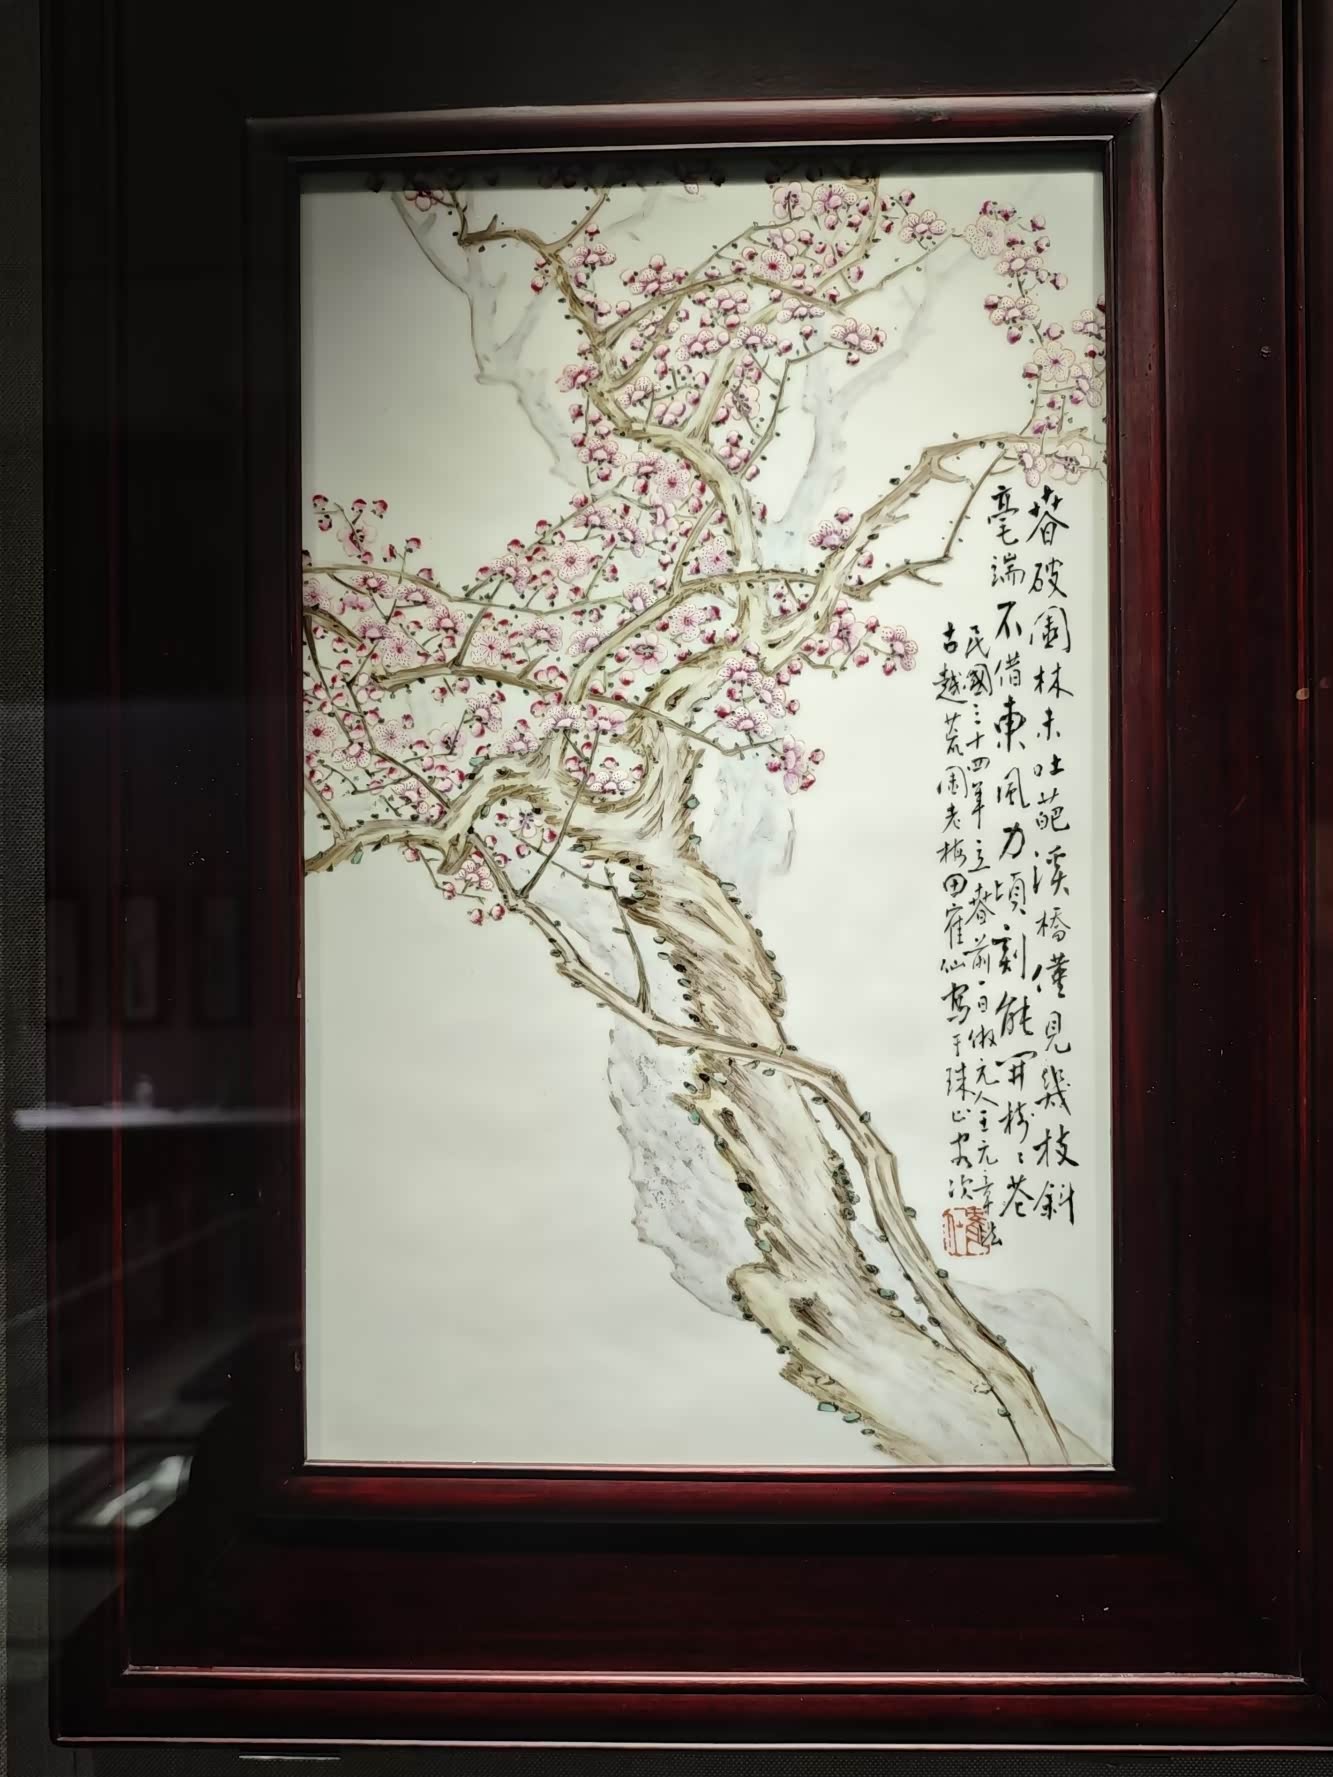 春破園林未吐葩溪橋僅見幾枝斜
毫端不借東風力頃刻能開樹〻花
民國三十四年立春前一日倣元人王元章法
古越荒園老梅田寉仙寫于珠山客次